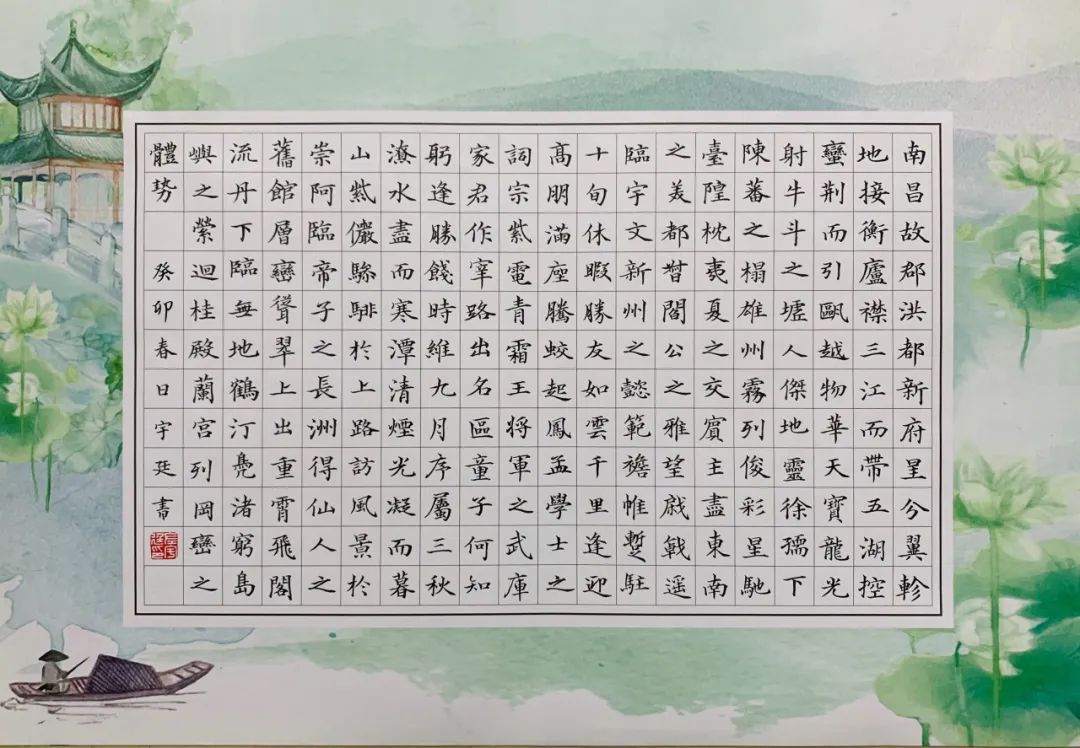 南昌故郡洪都新府星分翼軫
地接衡廬襟三江而帶五湖控
蠻荆而引甌越物華天寶龍光
射牛斗之墟人傑地靈徐孺下
陳蕃之榻雄州霧列俊彩星馳
臺隍枕夷夏之交賓主盡東南
之美都督閻公之雅望棨戟遥
臨宇文新州之懿範襜帷蹔駐
十旬休暇勝友如雲千里逢迎
高朋滿座騰蛟起鳳孟學士之
詞宗紫電青霜王將軍之武庫
家君作宰路出名區童子何知
躬逢勝餞時維九月序屬三秋
潦水盡而寒潭清煙光凝而暮
山紫儼驂騑於上路訪風景於
崇阿臨帝子之長洲得仙人之
舊館層巒聳翠上出重霄飛閣
流丹下臨無地鶴汀鳧渚窮島
嶼之縈迴桂殿蘭宮列岡巒之
體勢 癸卯春日宇廷書